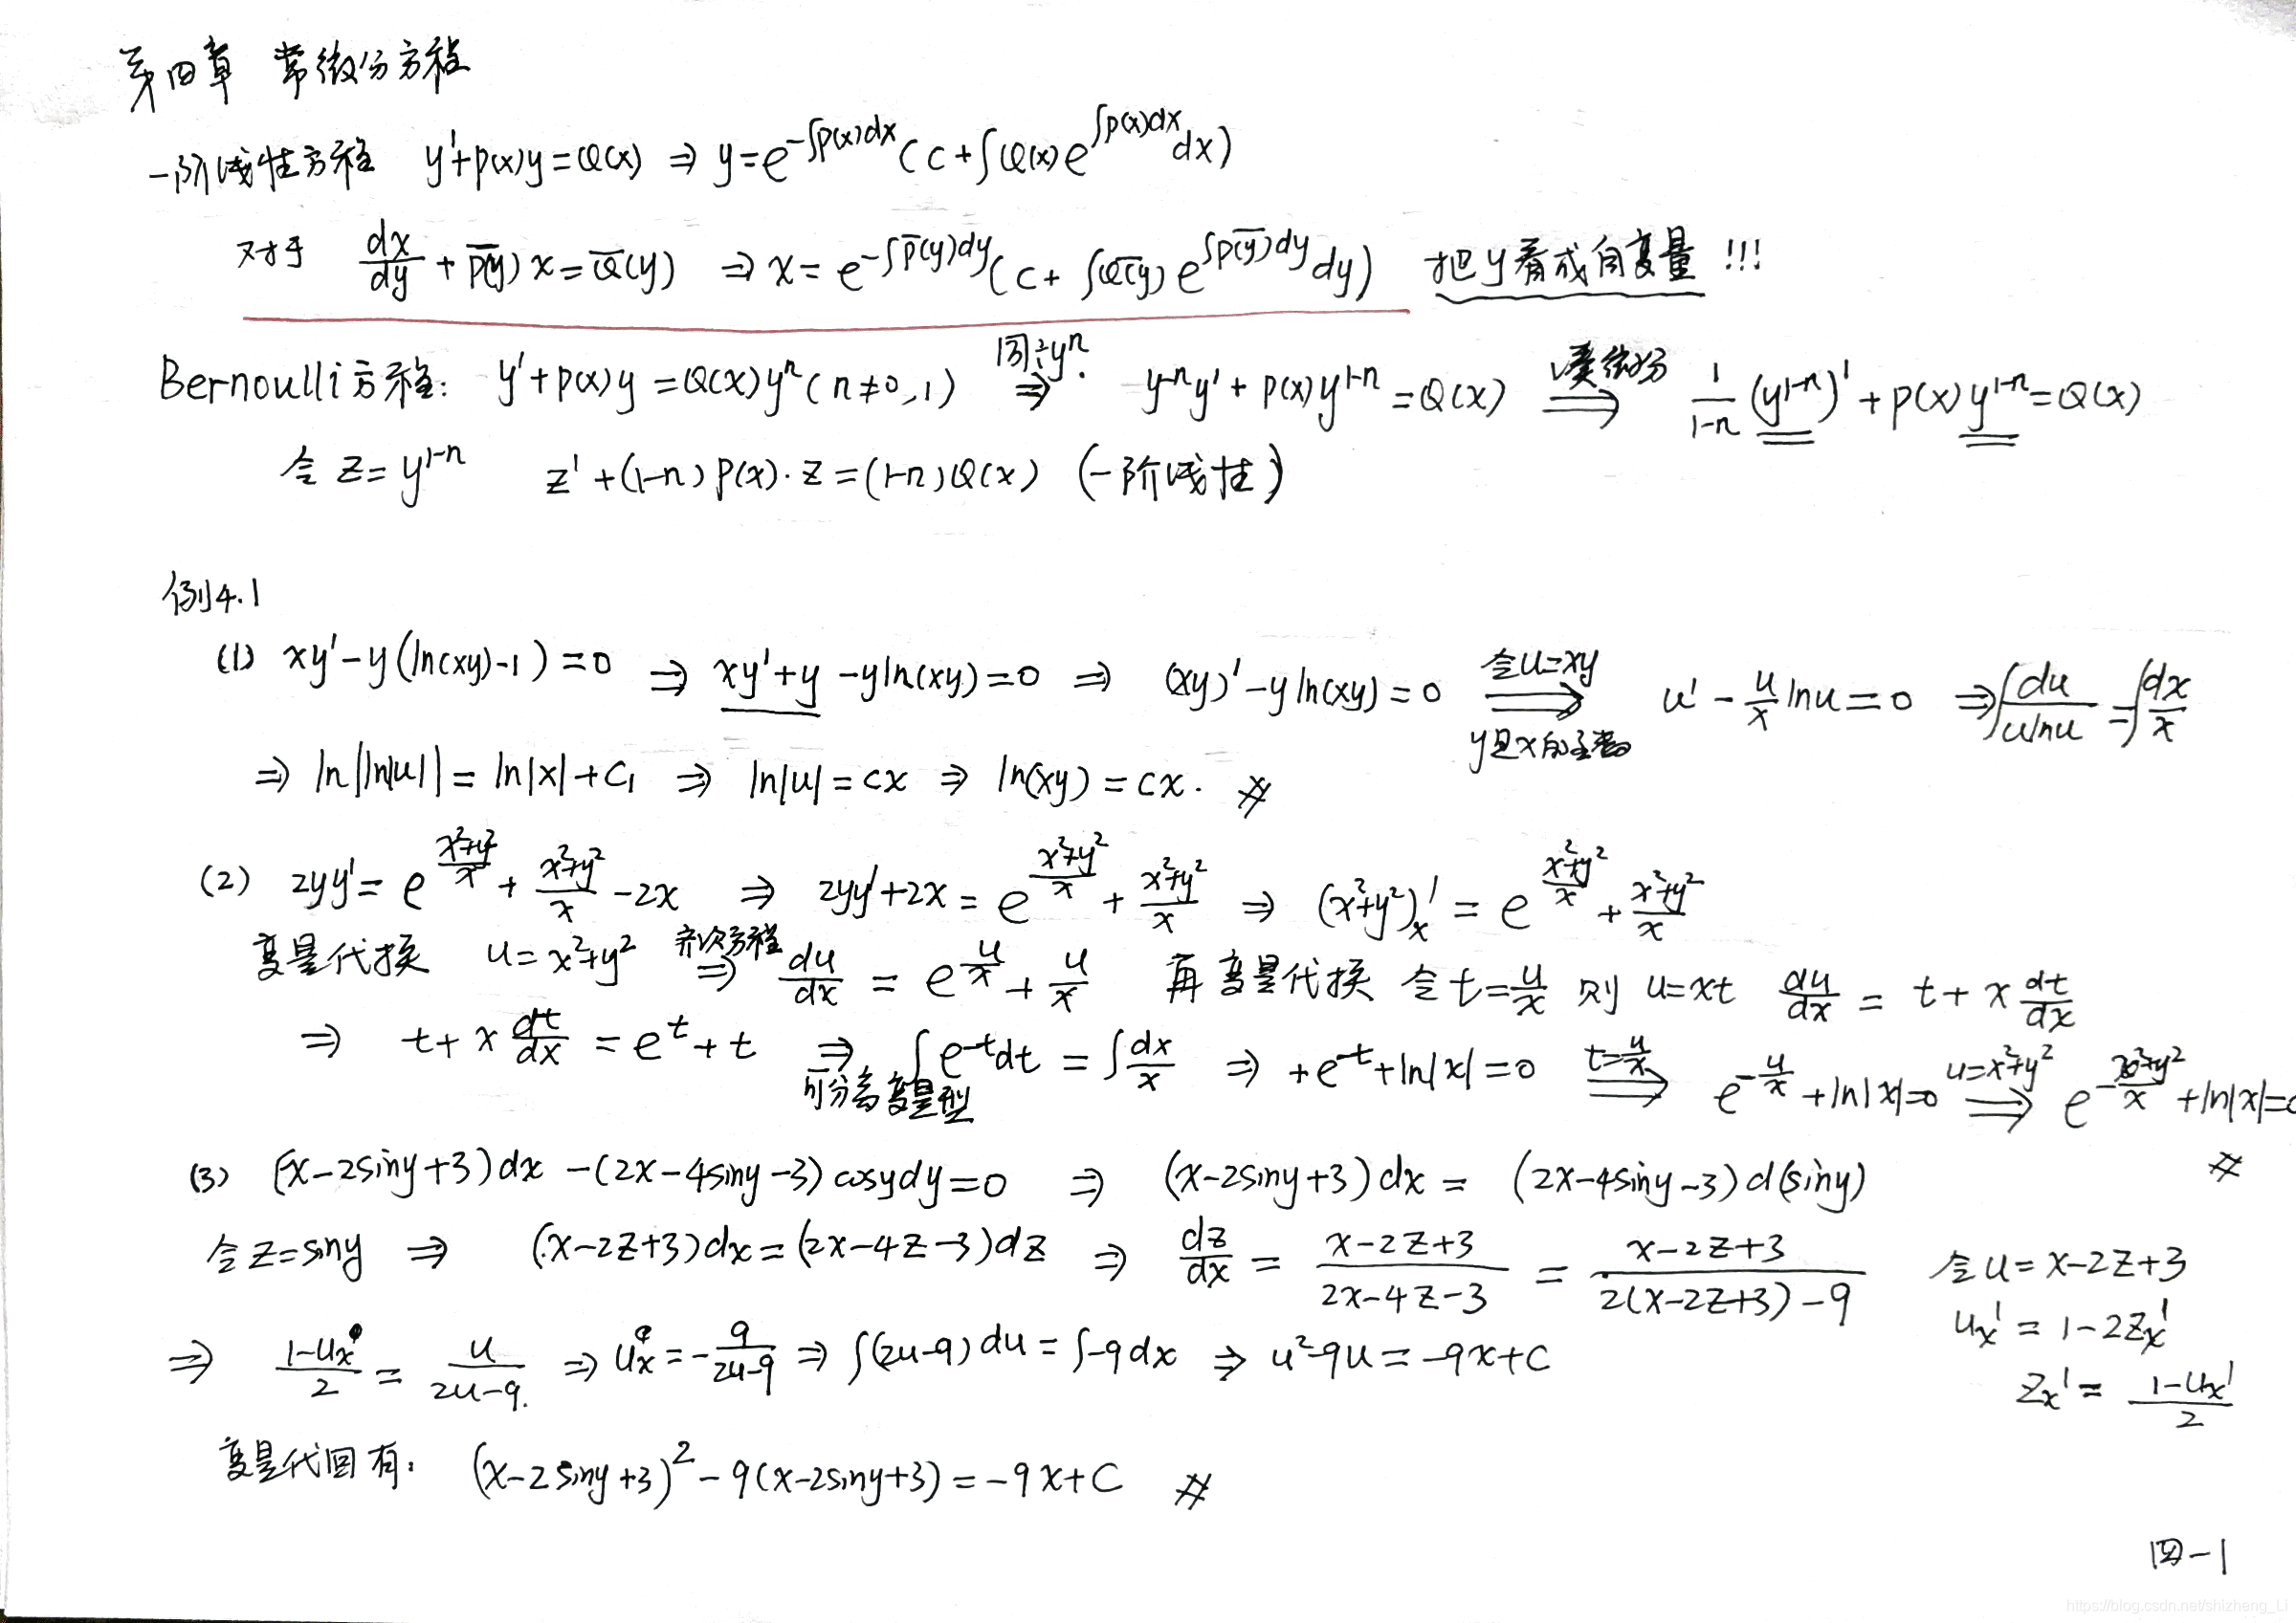 第四章 常微分方程
一阶线性方程 y'+p(x)y=Q(x) ⇒ y=e^{-∫p(x)dx}(C+∫Q(x)e^{∫p(x)dx}dx)
对于 dx/dy + \overline{p}(y)x=\overline{Q}(y) ⇒ x=e^{-∫\overline{p}(y)dy}(C+∫\overline{Q}(y)e^{∫\overline{p}(y)dy}dy) 把y看成自变量!!!
Bernoulli方程: y'+p(x)y=Q(x)y^n(n≠0,1) 同÷y^n ⇒ y^{-n}y'+p(x)y^{1-n}=Q(x) 凑微分 ⟹ 1/(1-n) (y^{1-n})'+p(x)y^{1-n}=Q(x)
令z=y^{1-n} z'+(1-n)p(x)·z=(1-n)Q(x) (一阶线性)
例4.1
(1) xy'-y(ln(xy)-1)=0 ⇒ xy'+y-yln(xy)=0 ⇒ (xy)'-yln(xy)=0 令u=xy ⟹ y是x的函数 u'-u/x lnu=0 ⇒ ∫du/(ulnu)=∫dx/x
⇒ ln|ln|u||=ln|x|+C₁ ⇒ ln|u|=cx ⇒ ln(xy)=cx. #
(2) 2yy'=e^{(x²+y²)/x}+(x²+y²)/x-2x ⇒ 2yy'+2x=e^{(x²+y²)/x}+(x²+y²)/x ⇒ (x²+y²)'_x=e^{(x²+y²)/x}+(x²+y²)/x
变量代换 u=x²+y² 齐次方程 ⇒ du/dx=e^{u/x}+u/x 再变量代换 令t=u/x 则 u=xt du/dx=t+x dt/dx
⇒ t+x dt/dx=e^t+t ⇒ 可分离变量型 ∫e^{-t}dt=∫dx/x ⇒ +e^{-t}+ln|x|=0 t=u/x ⟹ e^{-u/x}+ln|x|=0 u=x²+y² ⟹ e^{-(x²+y²)/x}+ln|x|=c
#
(3) (x-2siny+3)dx-(2x-4siny-3)cosydy=0 ⇒ (x-2siny+3)dx=(2x-4siny-3)d(siny)
令z=siny ⇒ (x-2z+3)dx=(2x-4z-3)dz ⇒ dz/dx=(x-2z+3)/(2x-4z-3)=(x-2z+3)/(2(x-2z+3)-9) 令u=x-2z+3
u_x'=1-2z_x'
⇒ (1-u_x')/2=u/(2u-9) ⇒ u_x'=-9/(2u-9) ⇒ ∫(2u-9)du=∫-9dx ⇒ u²-9u=-9x+C
z_x'=(1-u_x')/2
变量代回有: (x-2siny+3)²-9(x-2siny+3)=-9x+C #
四-1
https://blog.csdn.net/shizheng_Li